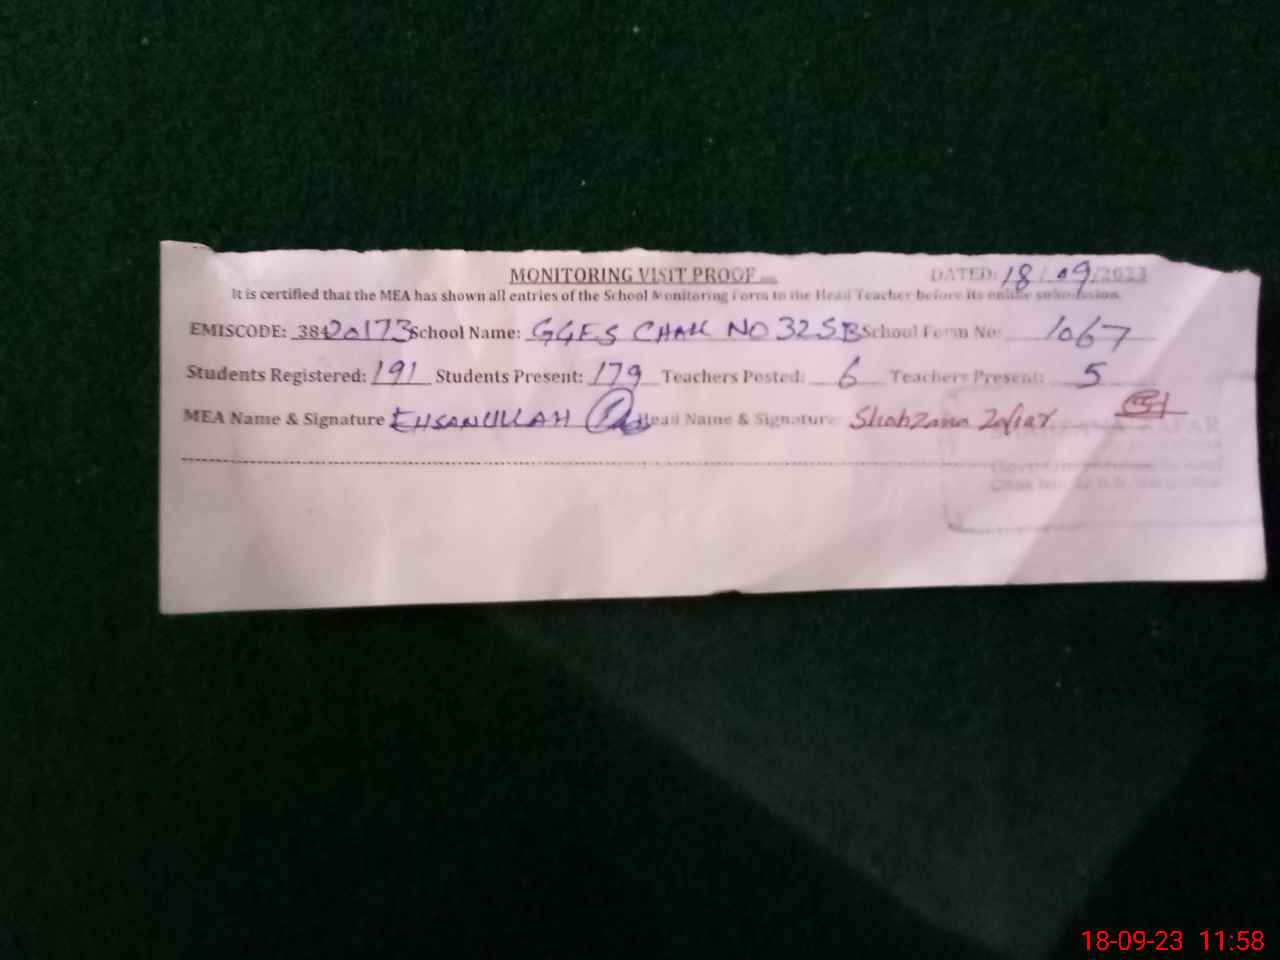 MONITORING VISIT PROOF
DATED: 18/09/2023
It is certified that the MEA has shown all entries of the School Monitoring Form to the Head Teacher before its online submission.
EMISCODE: 38420173 School Name: GGES CHAK NO 32SB School Form No: 1067
Students Registered: 191 Students Present: 179 Teachers Posted: 6 Teachers Present: 5
MEA Name & Signature EHSANULLAH Head Name & Signature: Shahzana Zafar
ZAFAR
18-09-23 11:58